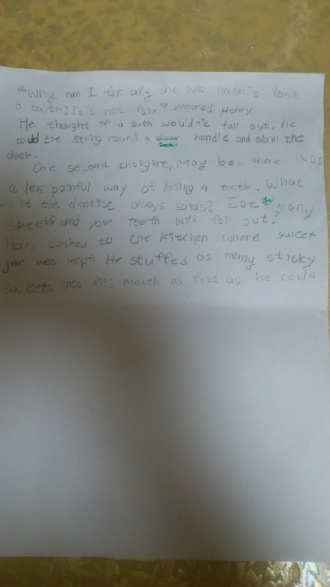 "Why am I the only one who hasn't lost
a tooth? It's not fair" moaned Henry.
He thought if a tooth wouldn't fall out, he
could tie string round a door handle and slam the
door.
One second thought, may be there was
a less painful way of losing a tooth. What
the dentise always sands? Eat many
sweets and your teeth will fall out?
Henry dashed to the kitchen where sweet
jar was kept He stuffed as many sticky
sweets into his mouth as fast as he could